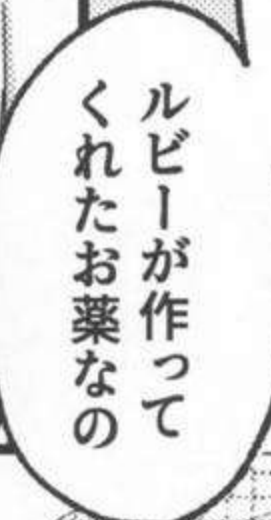 ルビーが作って
くれたお薬なの